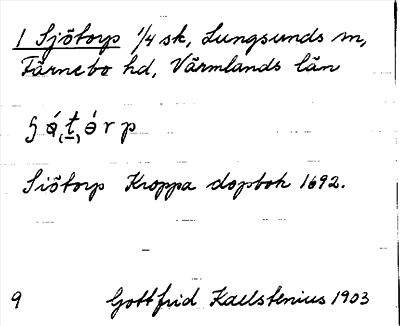 1 Sjötorp 1/4 sk, Lungsunds sn,
Färnebo hd, Värmlands län
Siötorp Kroppa dopbok 1692.
9 Gottfrid Kallstenius 1903